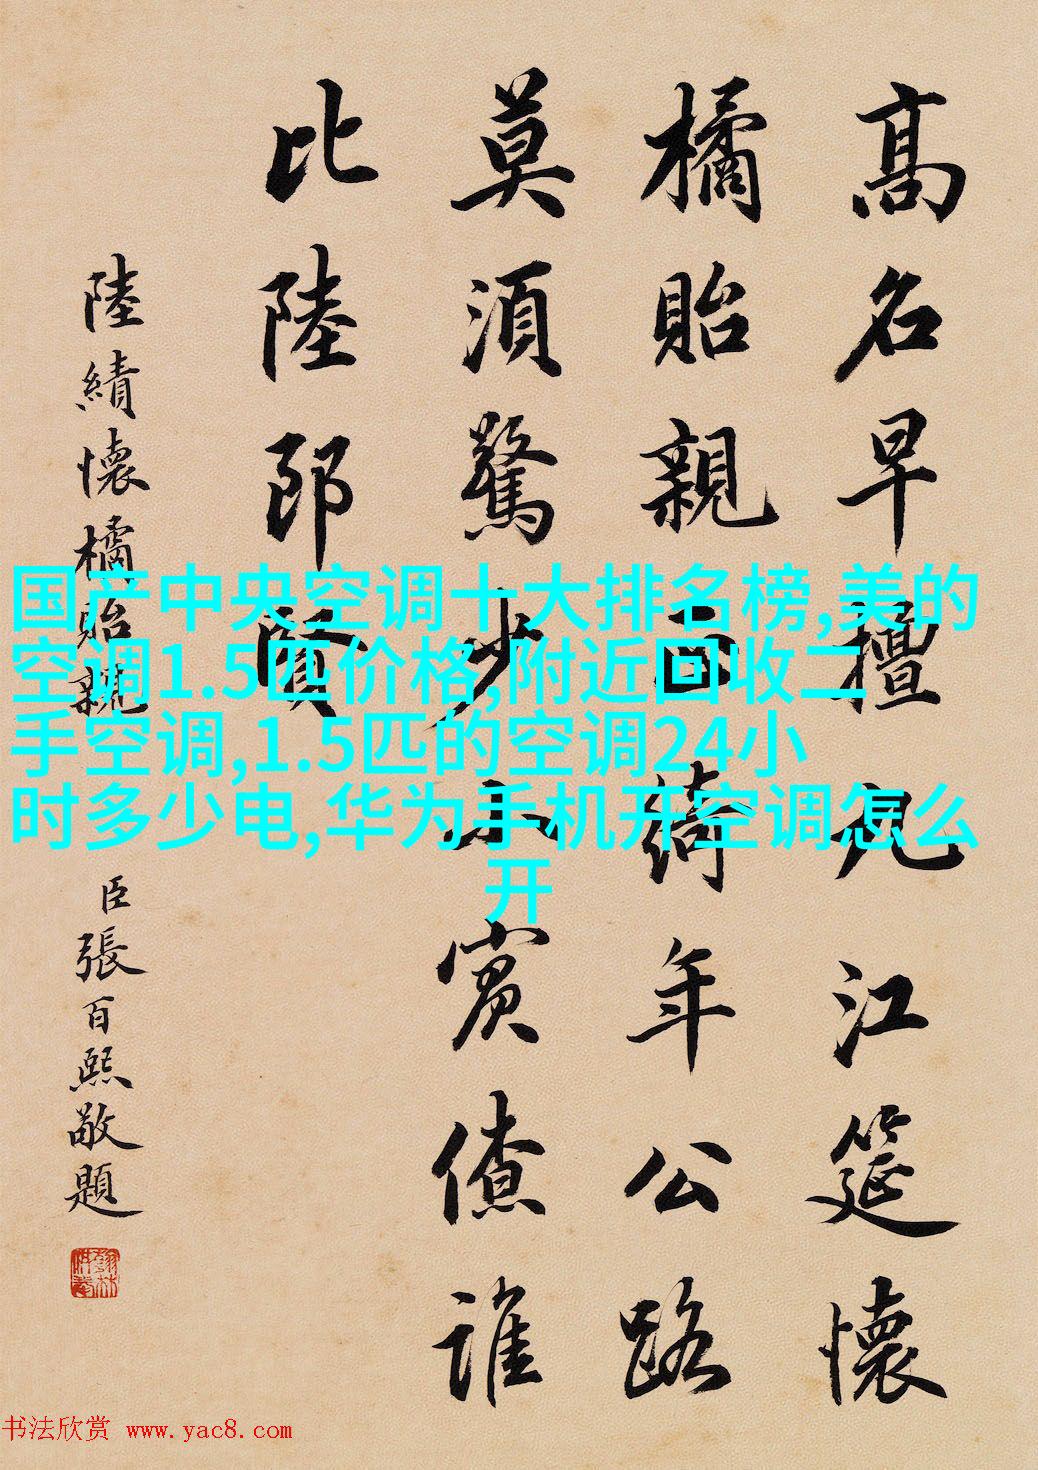 髙名早擅九江筵懷
橘貽親綺年公路
莫須驚少小賓僚誰
比陸郎賢
陸績懷橘貽親
臣張百熙敬題
翰林供奉
国产中央空调十大排名榜,美的
空调1.5匹价格,附近回收二
手空调,1.5匹的空调24小
时多少电,华为手机开空调怎么
开
书法欣赏 www.yac8.com